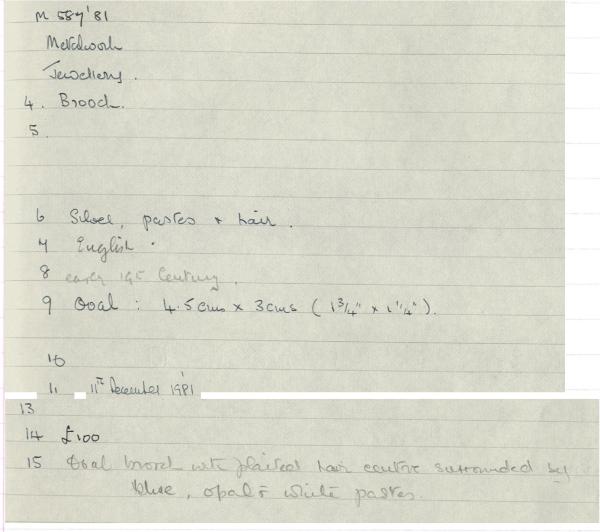 M 587'81
Metalwork
Jewellery.
4. Brooch.
5.
6 Silver, pastes + hair.
7 English.
8 early 19th Century.
9 Oval : 4.5 cms x 3 cms ( 1 3/4" x 1 1/4" ).
10
11 11th December 1981
13
14 £100
15 Oval brooch with plaited hair centre surrounded by
blue, opal + white pastes.